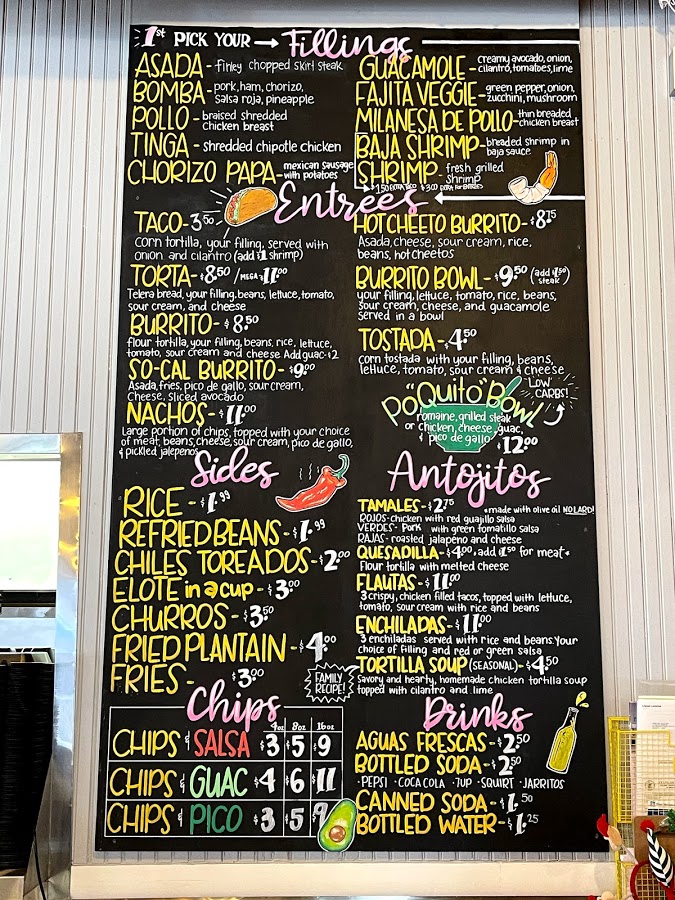 1st PICK YOUR → Fillings
ASADA - finley chopped skirt steak
BOMBA - pork, ham, chorizo,
salsa roja, pineapple
POLLO - braised shredded
chicken breast
TINGA - shredded chipotle chicken
CHORIZO PAPA - mexican sausage
with potatoes
GUACAMOLE - creamy avocado, onion,
cilantro, tomatoes, lime
FAJITA VEGGIE - green pepper, onion,
zucchini, mushroom
MILANESA DE POLLO - thin breaded
chicken breast
BAJA SHRIMP - breaded shrimp in
baja sauce
SHRIMP - fresh grilled
shrimp
Entrees
TACO - 3.50
corn tortilla, your filling, served with
onion and cilantro (add $1 shrimp)
TORTA - $8.50 / MEGA - $11.00
Telera bread, your filling, beans, lettuce, tomato,
sour cream, and cheese
BURRITO - $8.50
flour tortilla, your filling, beans, rice, lettuce,
tomato, sour cream and cheese Add guac - $2
SO-CAL BURRITO - $9.00
Asada, fries, pico de gallo, sour cream,
Cheese, sliced avocado
NACHOS - $11.00
Large portion of chips, topped with your choice
of meat, beans, cheese, sour cream, pico de gallo,
& pickled jalepenos
HOT CHEETO BURRITO - $8.75
Asada, cheese, sour cream, rice,
beans, hot cheetos
BURRITO BOWL - $9.50 (add $1.50 steak)
your filling, lettuce, tomato, rice, beans,
sour cream, cheese, and guacamole
served in a bowl
TOSTADA - $4.50
corn tostada with your filling, beans,
lettuce, tomato, sour cream & cheese
PO"QUITO" BOWL
LOW CARBS!
romaine, grilled steak
or chicken, cheese, guac,
& pico de gallo $12.00
Sides
RICE - $1.99
REFRIED BEANS - $1.99
CHILES TOREADOS - $2.00
ELOTE in a cup - $3.00
CHURROS - $3.50
FRIED PLANTAIN - $4.00
FRIES - $3.00
Antojitos
TAMALES - $2.75 *made with olive oil NO LARD!
ROJOS - chicken with red guajillo salsa
VERDES - Pork with green tomatillo salsa
RAJAS - roasted jalapeno and cheese
QUESADILLA - $4.00, add $1.50 for meat*
Flour tortilla with melted cheese
FLAUTAS - $11.00
3 crispy, chicken filled tacos, topped with lettuce,
tomato, sour cream with rice and beans
ENCHILADAS - $11.00
3 enchiladas served with rice and beans. Your
choice of filling and red or green salsa
TORTILLA SOUP (SEASONAL) - $4.50
FAMILY RECIPE!
Savory and hearty, homemade chicken tortilla soup
topped with cilantro and lime
Chips
4oz 8oz 16oz
CHIPS & SALSA $3 $5 $9
CHIPS & GUAC $4 $6 $11
CHIPS & PICO $3 $5 $9
Drinks
AGUAS FRESCAS - $2.50
BOTTLED SODA - $2.50
·PEPSI ·COCA COLA ·7UP ·SQUIRT ·JARRITOS
CANNED SODA - $1.50
BOTTLED WATER - $1.25